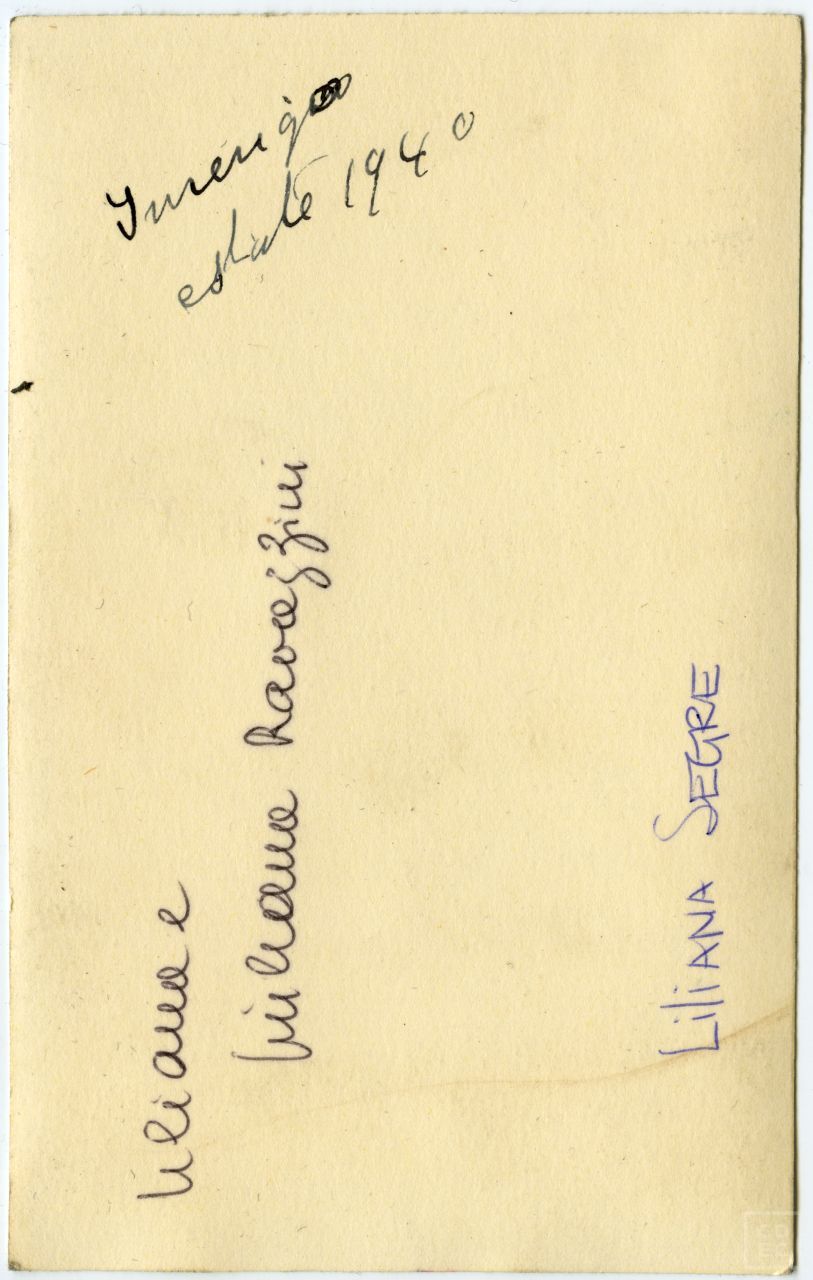 Inverigo
estate 1940
Liliana e
Ravazzini
LILIANA SEGRE